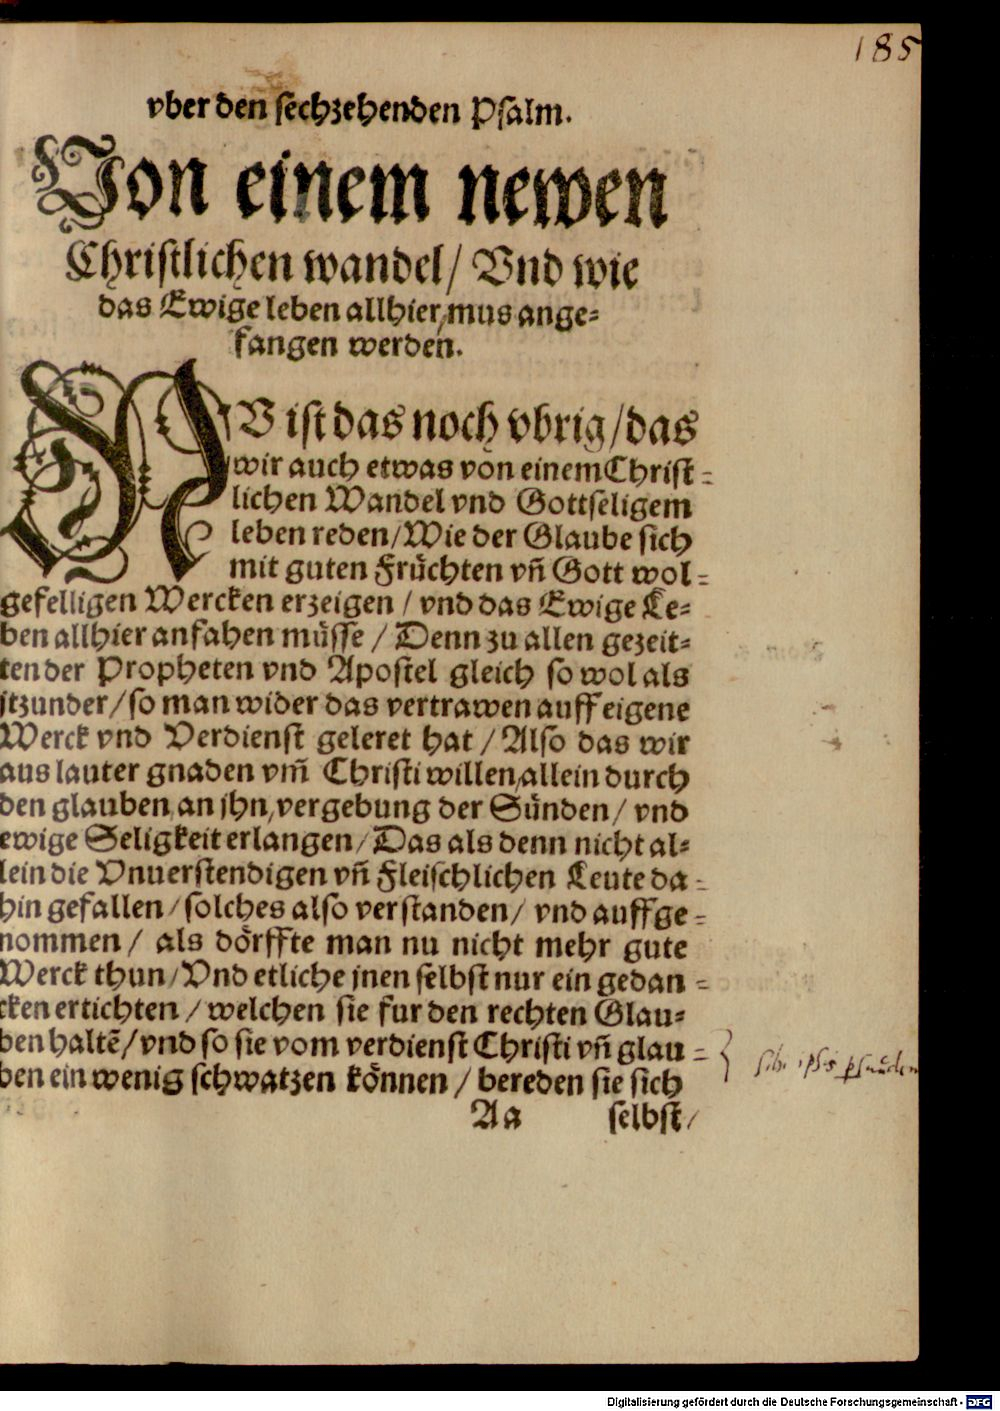 185
vber den sechzehenden Psalm.
Von einem newen
Christlichen wandel/ Vnd wie
das Ewige leben allhier/mus ange-
fangen werden.
NV ist das noch vbrig/das
wir auch etwas von einem Christ-
lichen Wandel vnd Gottseligem
leben reden/Wie der Glaube sich
mit guten Früchten vñ Gott wol-
gefelligen Wercken erzeigen / vnd das Ewige Le-
ben allhier anfahen müsse / Denn zu allen gezeit-
ten der Propheten vnd Apostel gleich so wol als
jtzunder/so man wider das vertrawen auff eigene
Werck vnd Verdienst geleret hat / Also das wir
aus lauter gnaden vm̃ Christi willen/allein durch
den glauben an jhn/vergebung der Sünden/ vnd
ewige Seligkeit erlangen/Das als denn nicht al-
lein die Vnuerstendigen vñ Fleischlichen Leute da-
hin gefallen/solches also verstanden/ vnd auffge-
nommen/ als dörffte man nu nicht mehr gute
Werck thun/Vnd etliche jnen selbst nur ein gedan-
cken ertichten /welchen sie fur den rechten Glau-
ben haltẽ/vnd so sie vom verdienst Christi vñ glau-
ben ein wenig schwatzen können / bereden sie sich
Aa selbst/
Digitalisierung gefördert durch die Deutsche Forschungsgemeinschaft - DFG